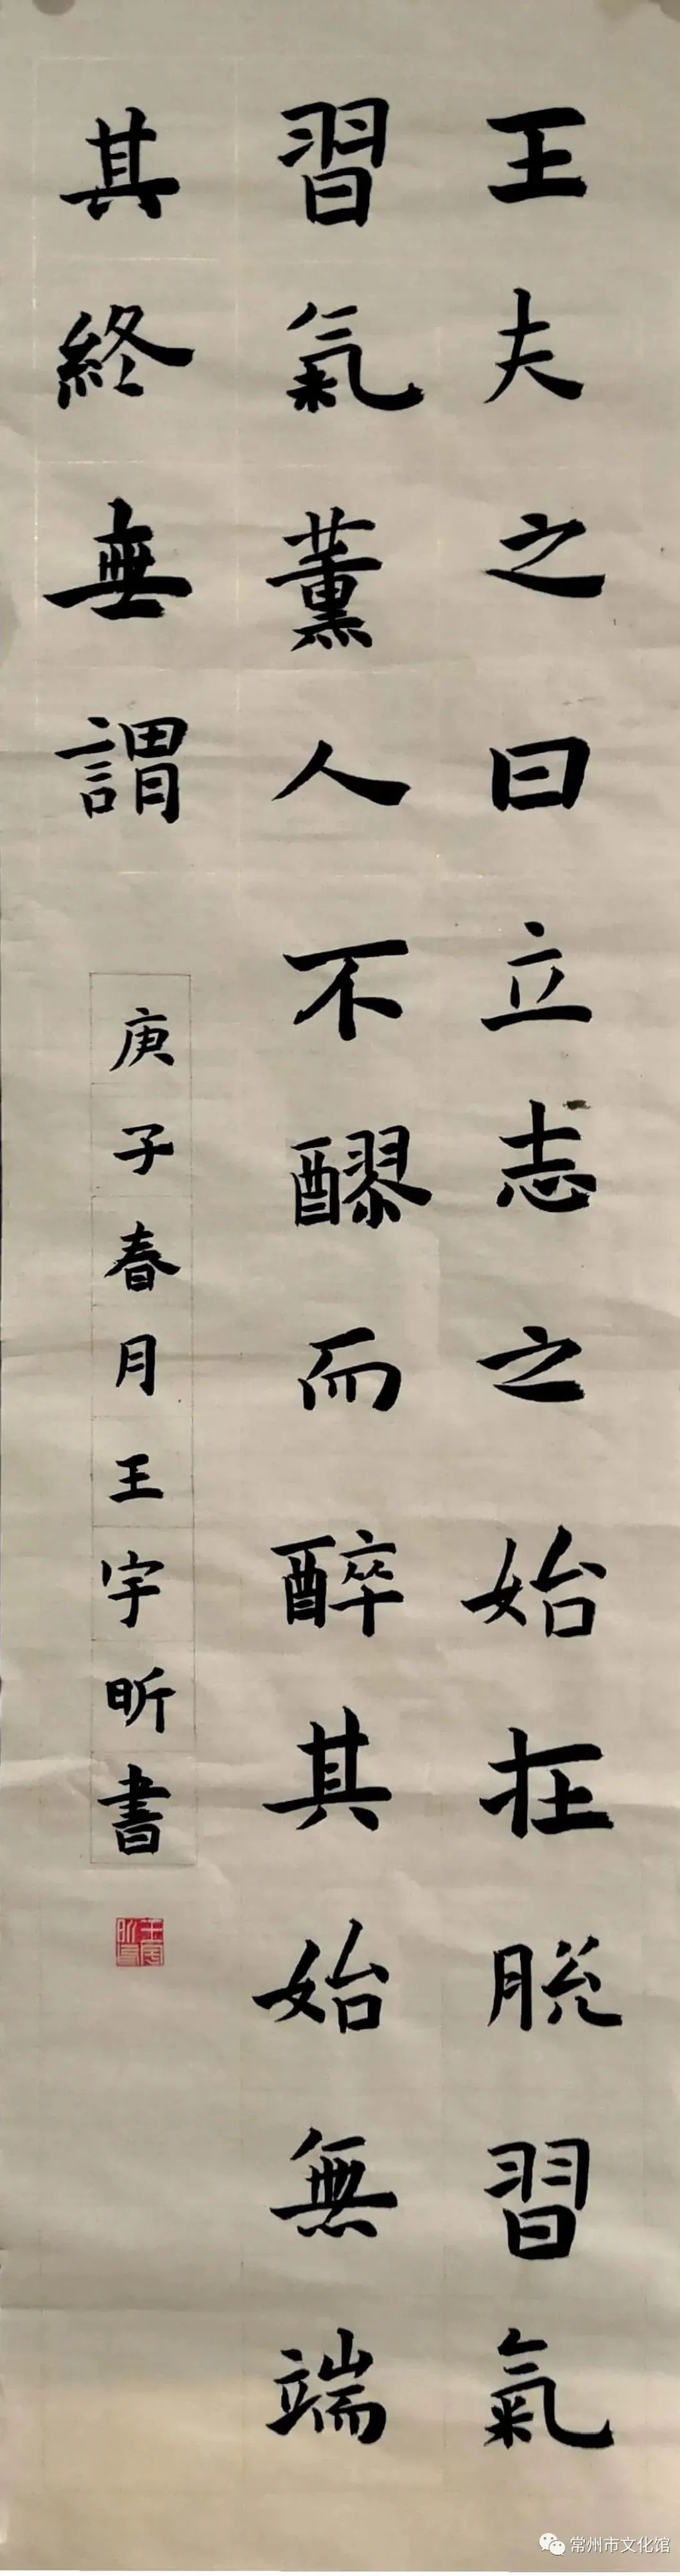 王夫之曰立志之始在脱習氣
習氣薰人不醪而醉其始無端
其終無謂
庚子春月王宇昕書
常州市文化馆